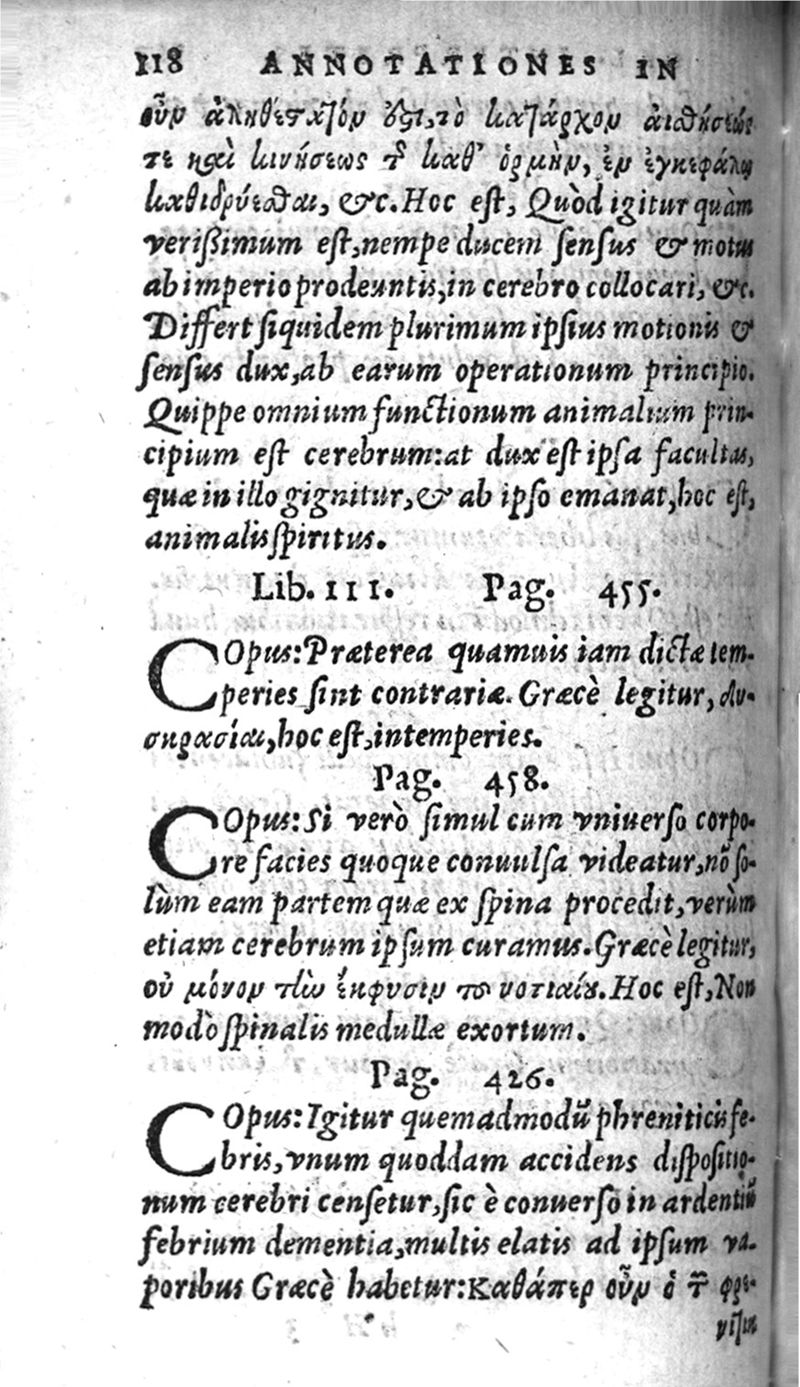 118 ANNOTATIONES IN
οὖν ἀληθέστατόν ὅτι τὸ κατάρχον αἰσθήσεώς
τε καὶ κινήσεως τ͂ καθ’ ὁρμὴν, ἐν ἐγκεφάλῳ
καθιδρύεσθαι, &c. Hoc est, Quòd igitur quàm
verißimum est, nempe ducem sensus & motus
ab imperio prodeuntis, in cerebro collocari, &c.
Differt siquidem plurimum ipsius motionis &
sensus dux, ab earum operationum principio.
Quippe omnium functionum animalium prin-
cipium est cerebrum: at dux est ipsa facultas,
quæ in illo gignitur, & ab ipso emanat, hoc est,
animalis spiritus.
Lib. III. Pag. 455.
COpus: Præterea quamuis iam dictæ tem-
peries sint contrariæ. Græcè legitur, δυ-
σκρασίαι, hoc est, intemperies.
Pag. 458.
COpus: Si verò simul cum vniuerso corpo-
re facies quoque conuulsa videatur, nō so-
lùm eam partem quæ ex spina procedit, verùm
etiam cerebrum ipsum curamus. Græcè legitur,
οὐ μόνον τὴν ἔκφυσιν τοῦ νοτιαίου. Hoc est, Non
modò spinalis medullæ exortum.
Pag. 426.
COpus: Igitur quemadmodū phreniticis fe-
bris, vnum quoddam accidens dispositio-
num cerebri censetur, sic è conuerso in ardentiū
febrium dementia, multis elatis ad ipsum va-
poribus Græcè habetur: Καθάπερ οὖν ὁ τ͂ φρε-
νίτιν